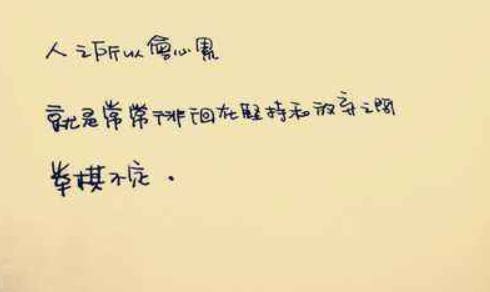 人之所以會心累
就是常常徘徊在堅持和放弃之間
舉棋不定.